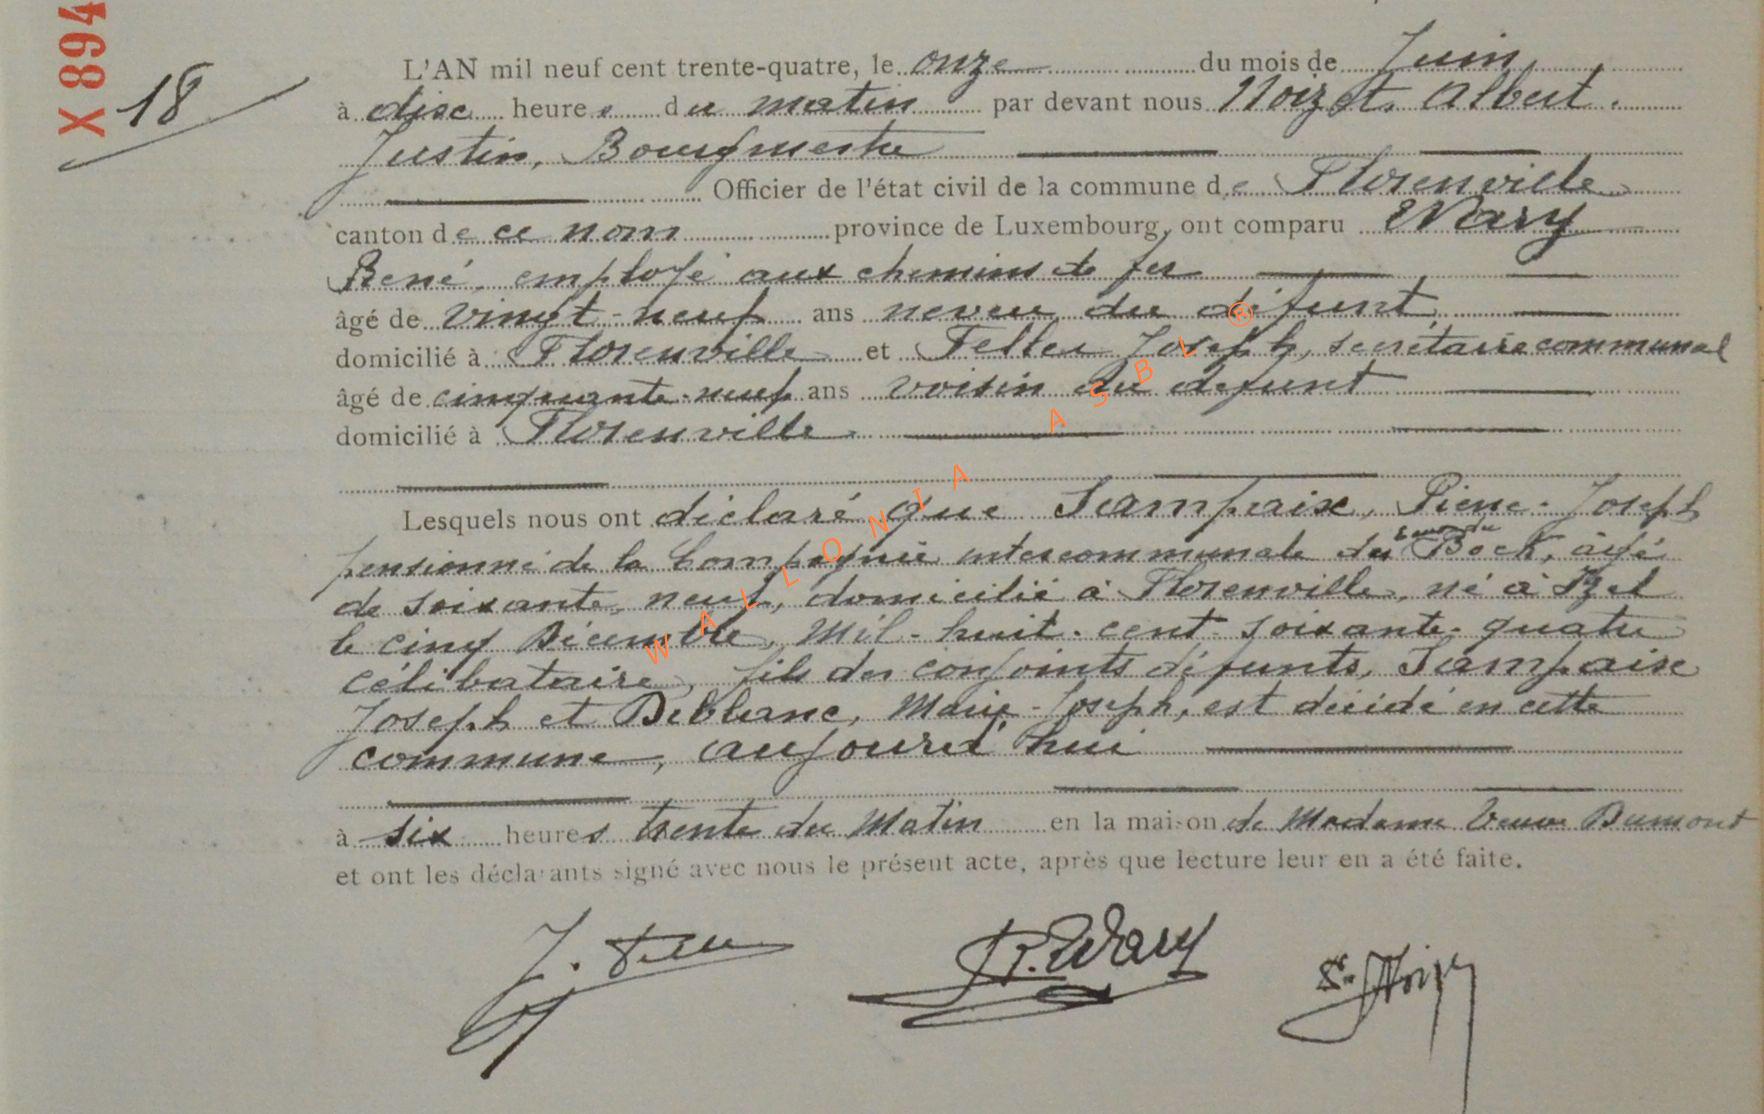 X 894
18
L'AN mil neuf cent trente-quatre, le onze du mois de Juin
à dix heures du matin par devant nous Noizet, Albert.
Justin, Bourgmestre
Officier de l'état civil de la commune de Florenville
canton de ce nom province de Luxembourg, ont comparu Wary
René, employé aux chemins de fer
âgé de vingt-neuf ans neveu du défunt
domicilié à Florenville et Feller Joseph, secrétaire communal
âgé de cinquante-neuf ans voisin du defunt
domicilié à Florenville
Lesquels nous ont déclaré que Sampaix, Pierre-Joseph
pensionné de la Compagnie intercommunale des Eaux du Bocq, âgé
de soixante-neuf, domicilié à Florenville, né à Izel
le cinq Décembre, Mil-huit-cent-soixante-quatre
célibataire, fils des conjoints défunts, Sampaix
Joseph et Deblanc, Marie-Joseph, est décédé en cette
commune, aujourd'hui
à six heures trente du Matin en la maison de Madame Veuve Dumont
et ont les déclarants signé avec nous le présent acte, après que lecture leur en a été faite.
J. Feller R. Wary
WALLONIA ASBL ®